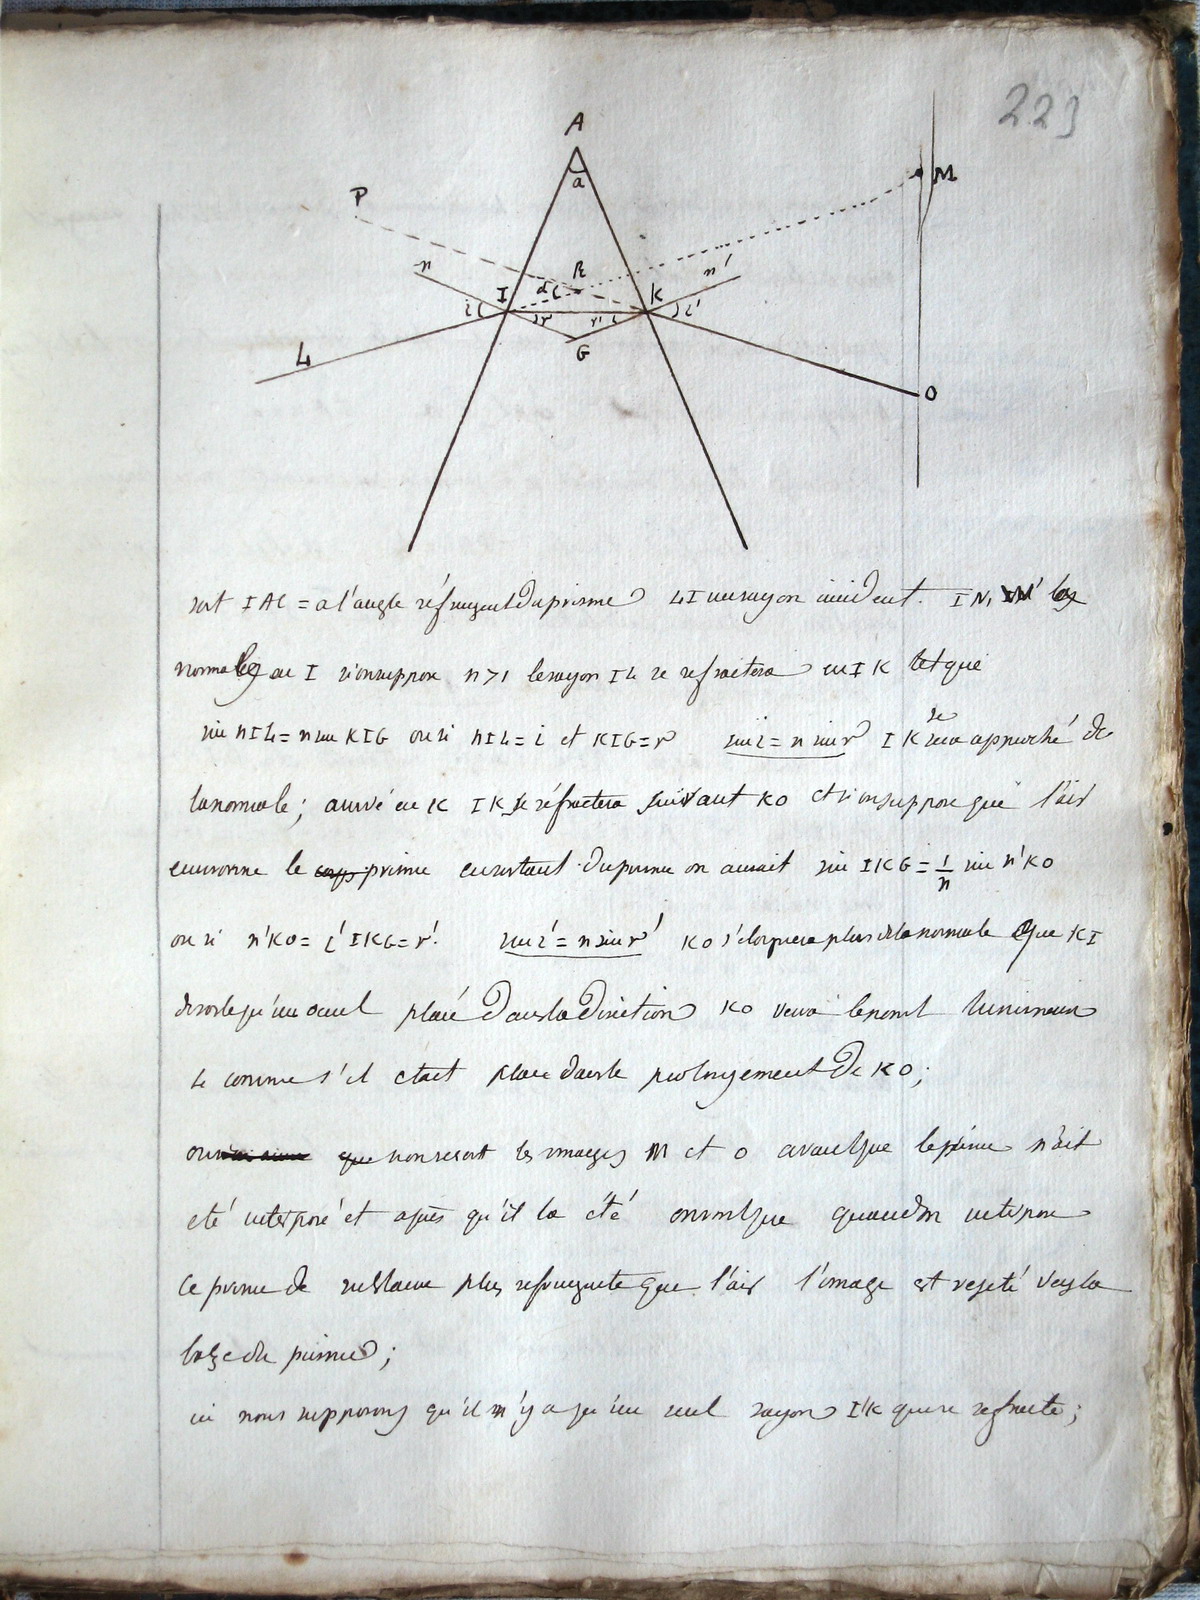 223
A
a
P
M
n
R
n'
I
d
K
i
r
r'
i'
L
G
O
soit IAC = a l'angle réfringent du prisme LI un rayon incident. IN, les
normales en I si on suppose n>1 le rayon IL se refractera en IK tel que
sin nIL = n sin KIG ou si nIL = i et KIG = r sin i = n sin r IK sera approché de
la normale; arrivé en K IK se réfractera suivant KO et si on suppose que l'air
environne le corps prisme en sortant du prisme on aurait sin IKG = 1/n sin n'KO
ou si n'KO = i' IKG = r'. sin i' = n sin r' KO s'éloignera plus de la normale que KI
de sorte qu'un oeuil placé dans la direction KO verra le point lumineux
L comme s'il etait placé dans le prolongement de KO;
que nous les images M et O avant que le prisme n'ait
eté interposé et après qu'il l'a été on voit que quand on interpose
ce prisme de substance plus refringente que l'air l'image est rejeté vers la
base du prisme;
ici nous supposons qu'il n'y a qu'un seul rayon IK qui se refracte;